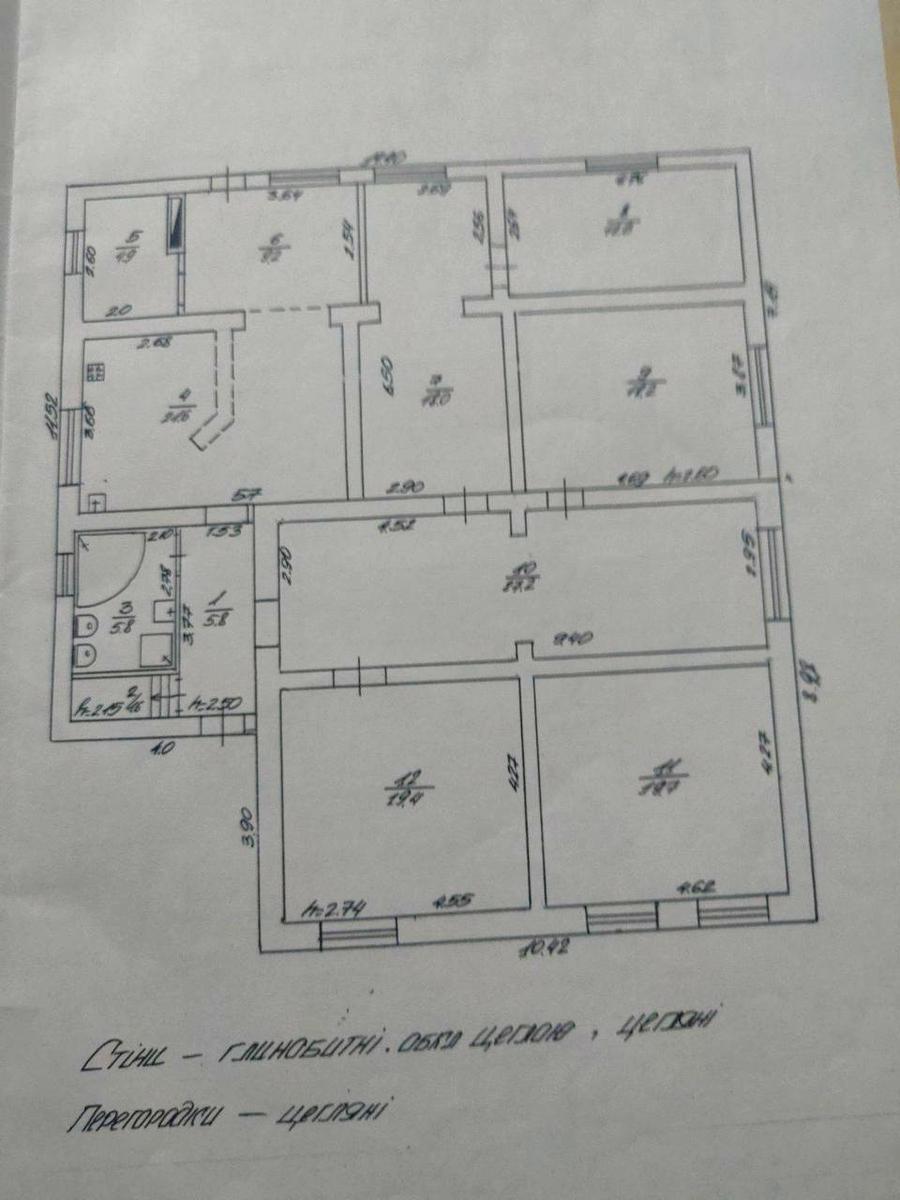 14.90
3.64
2.69
4.75
2.54
2.56
2.64
5
6
9.2
2.60
2.0
2.68
4
21.6
3.60
11.52
6.50
7
18.0
9
18.2
3.87
5.7
2.90
4.69 h=2.60
1.53
4.52
2.10
2.90
10
27.2
2.95
2.78
3
5.8
3.77
1
5.8
9.40
h=2.15
2
h=2.50
1.0
12
19.4
4.27
11
19.7
4.27
3.90
h=2.74
4.55
4.62
10.42
Стіни — глинобитні. обкл цеглою, цегляні
Перегородки — цегляні